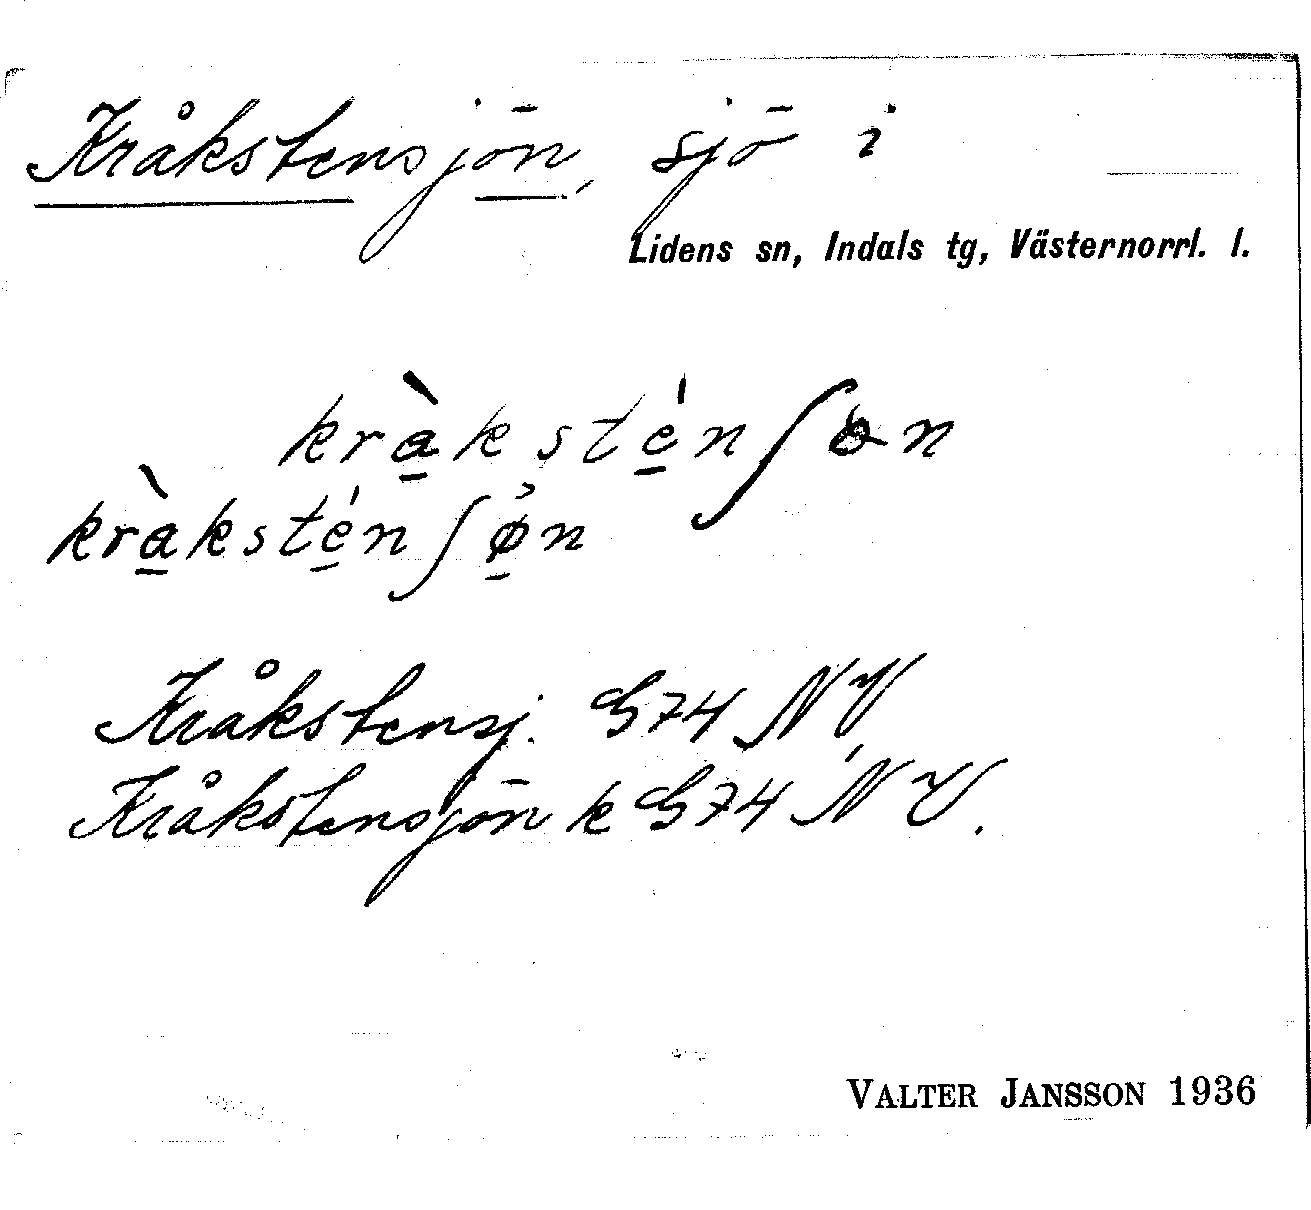 Kråkstensjön, sjö i
Lidens sn, Indals tg, Västernorrl. l.
krà̱ksté̱nʃɵn
krà̱ksté̱nʃø̱n
Kråkstensj. G74 NV
Kråkstensjön k G74 NV.
VALTER JANSSON 1936